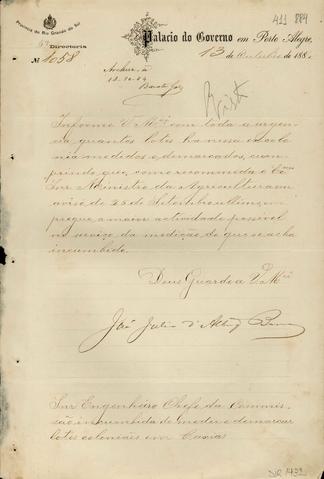 411 884
Provincia do Rio Grande do Sul
Palacio do Governo em Porto Alegre,
Directoria
13 de Outubro de 188
Nº 1058
Informe V. Mcê com toda a urgen-
cia quantos lotes ha nessa colo
nia medidos e demarcados, cum-
prindo que, como recommenda o
Snr. Ministro da Agricultura em
aviso de 25 de Setembro ultimo, em
pregue a maior actividade possivel
no serviço da medição de que se acha
incumbido.
Deus Guarde a V. Mcê
José Julio d'Albuq Barros
Snr. Engenheiro Chefe da Commis-
são incumbida de medir e demarcar
lotes coloniaes em Caxias